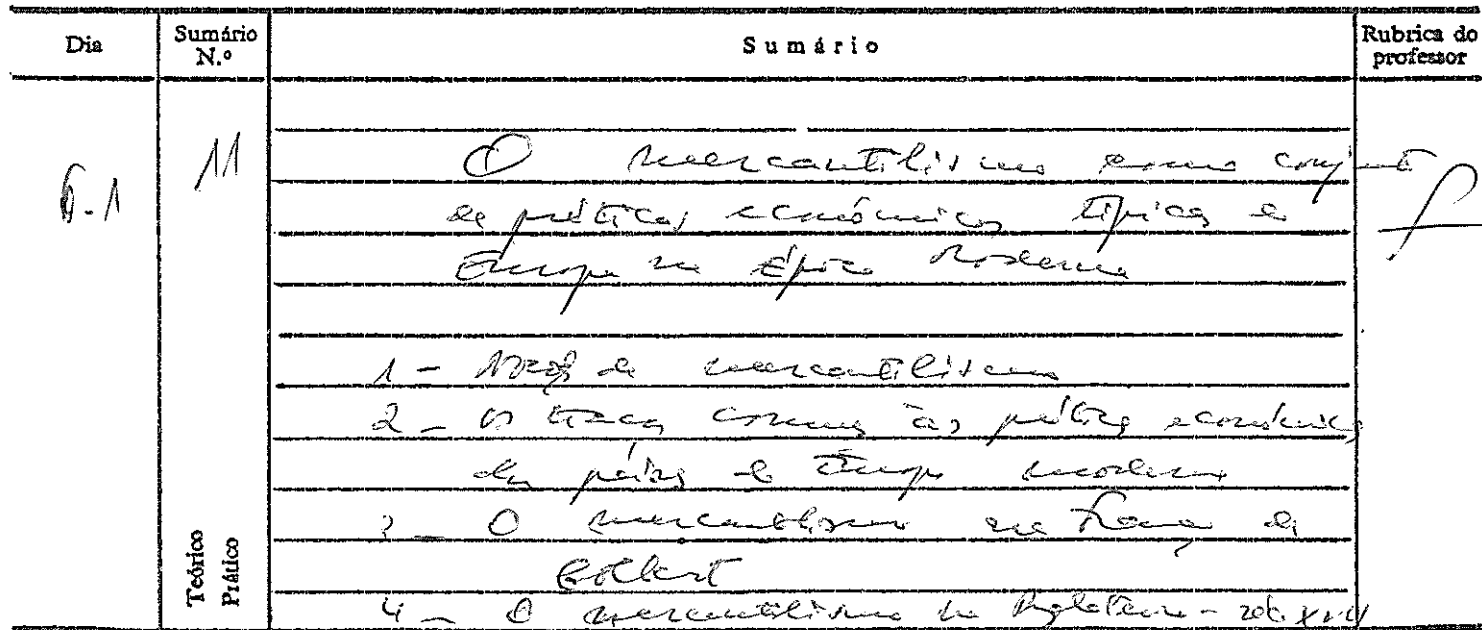 Dia Sumário N.º Sumário Rubrica do professor
11 O mercantilismo como conjunto
6-1 de práticas económicas típicas da
Europa na Época Moderna
1 - Noção de mercantilismo
2 - Os traços comuns às práticas económicas
dos países da Europa moderna
3 - O mercantilismo na França de
Colbert
4 - O mercantilismo na Inglaterra - séc. XVII
Teórico
Prático